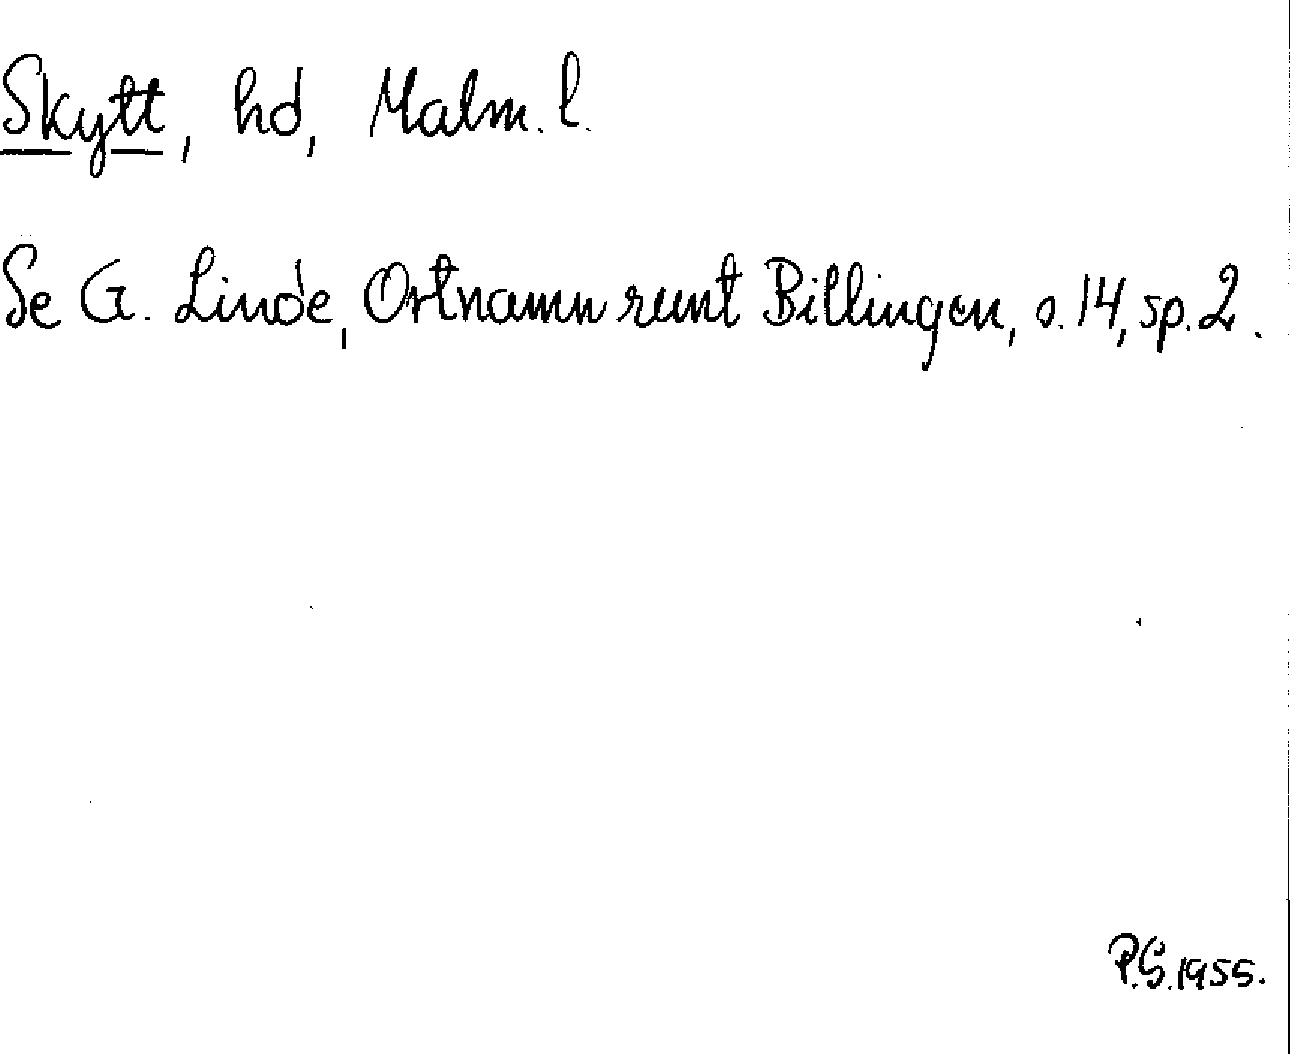 Skytt, hd, Malm. l.
Se G. Linde, Ortnamn runt Billingen, s. 14, sp. 2.
P.S. 1955.